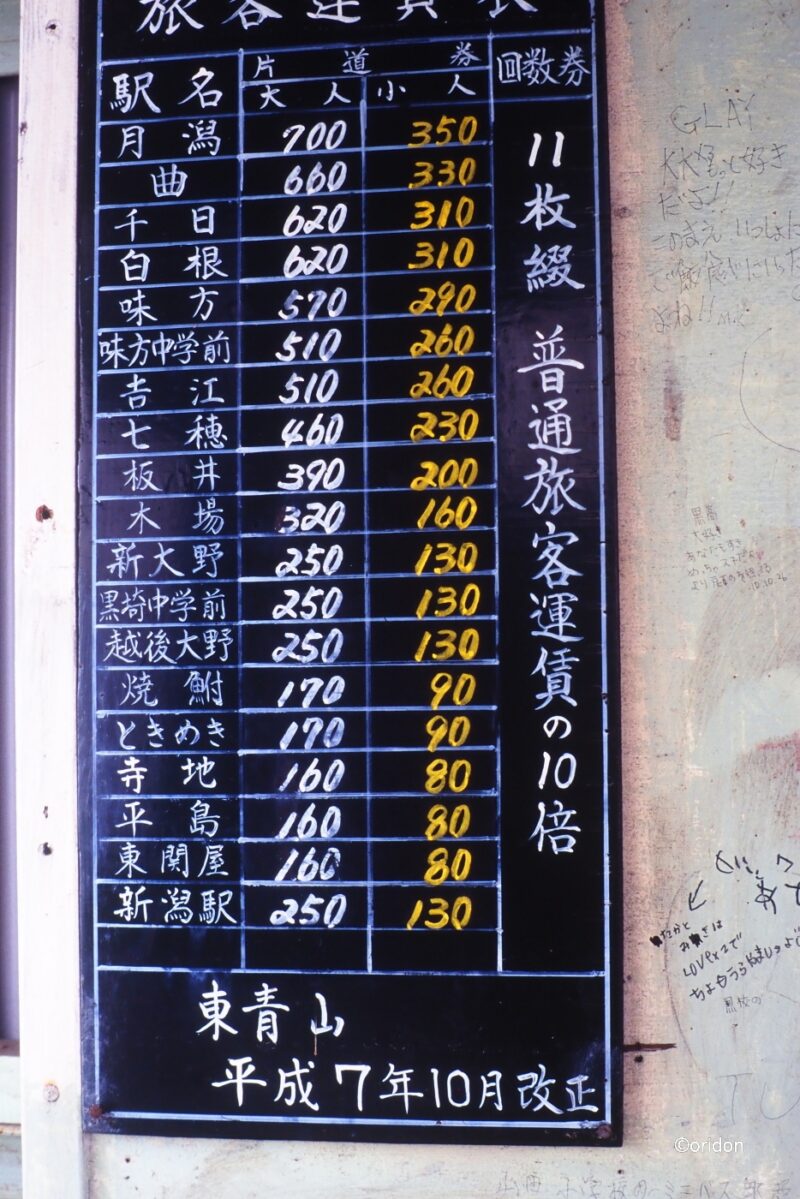 旅客運賃表
駅名 片道券 回数券
大人 小人
月潟 700 350
曲 660 330
千日 620 310
白根 620 310
味方 570 290
味方中学前 510 260
吉江 510 260
七穂 460 230
板井 390 200
木場 320 160
新大野 250 130
黒埼中学前 250 130
越後大野 250 130
焼鮒 170 90
ときめき 170 90
寺地 160 80
平島 160 80
東関屋 160 80
新潟駅 250 130
11枚綴 普通旅客運賃の10倍
東青山
平成7年10月改正
GLAY
©oridon